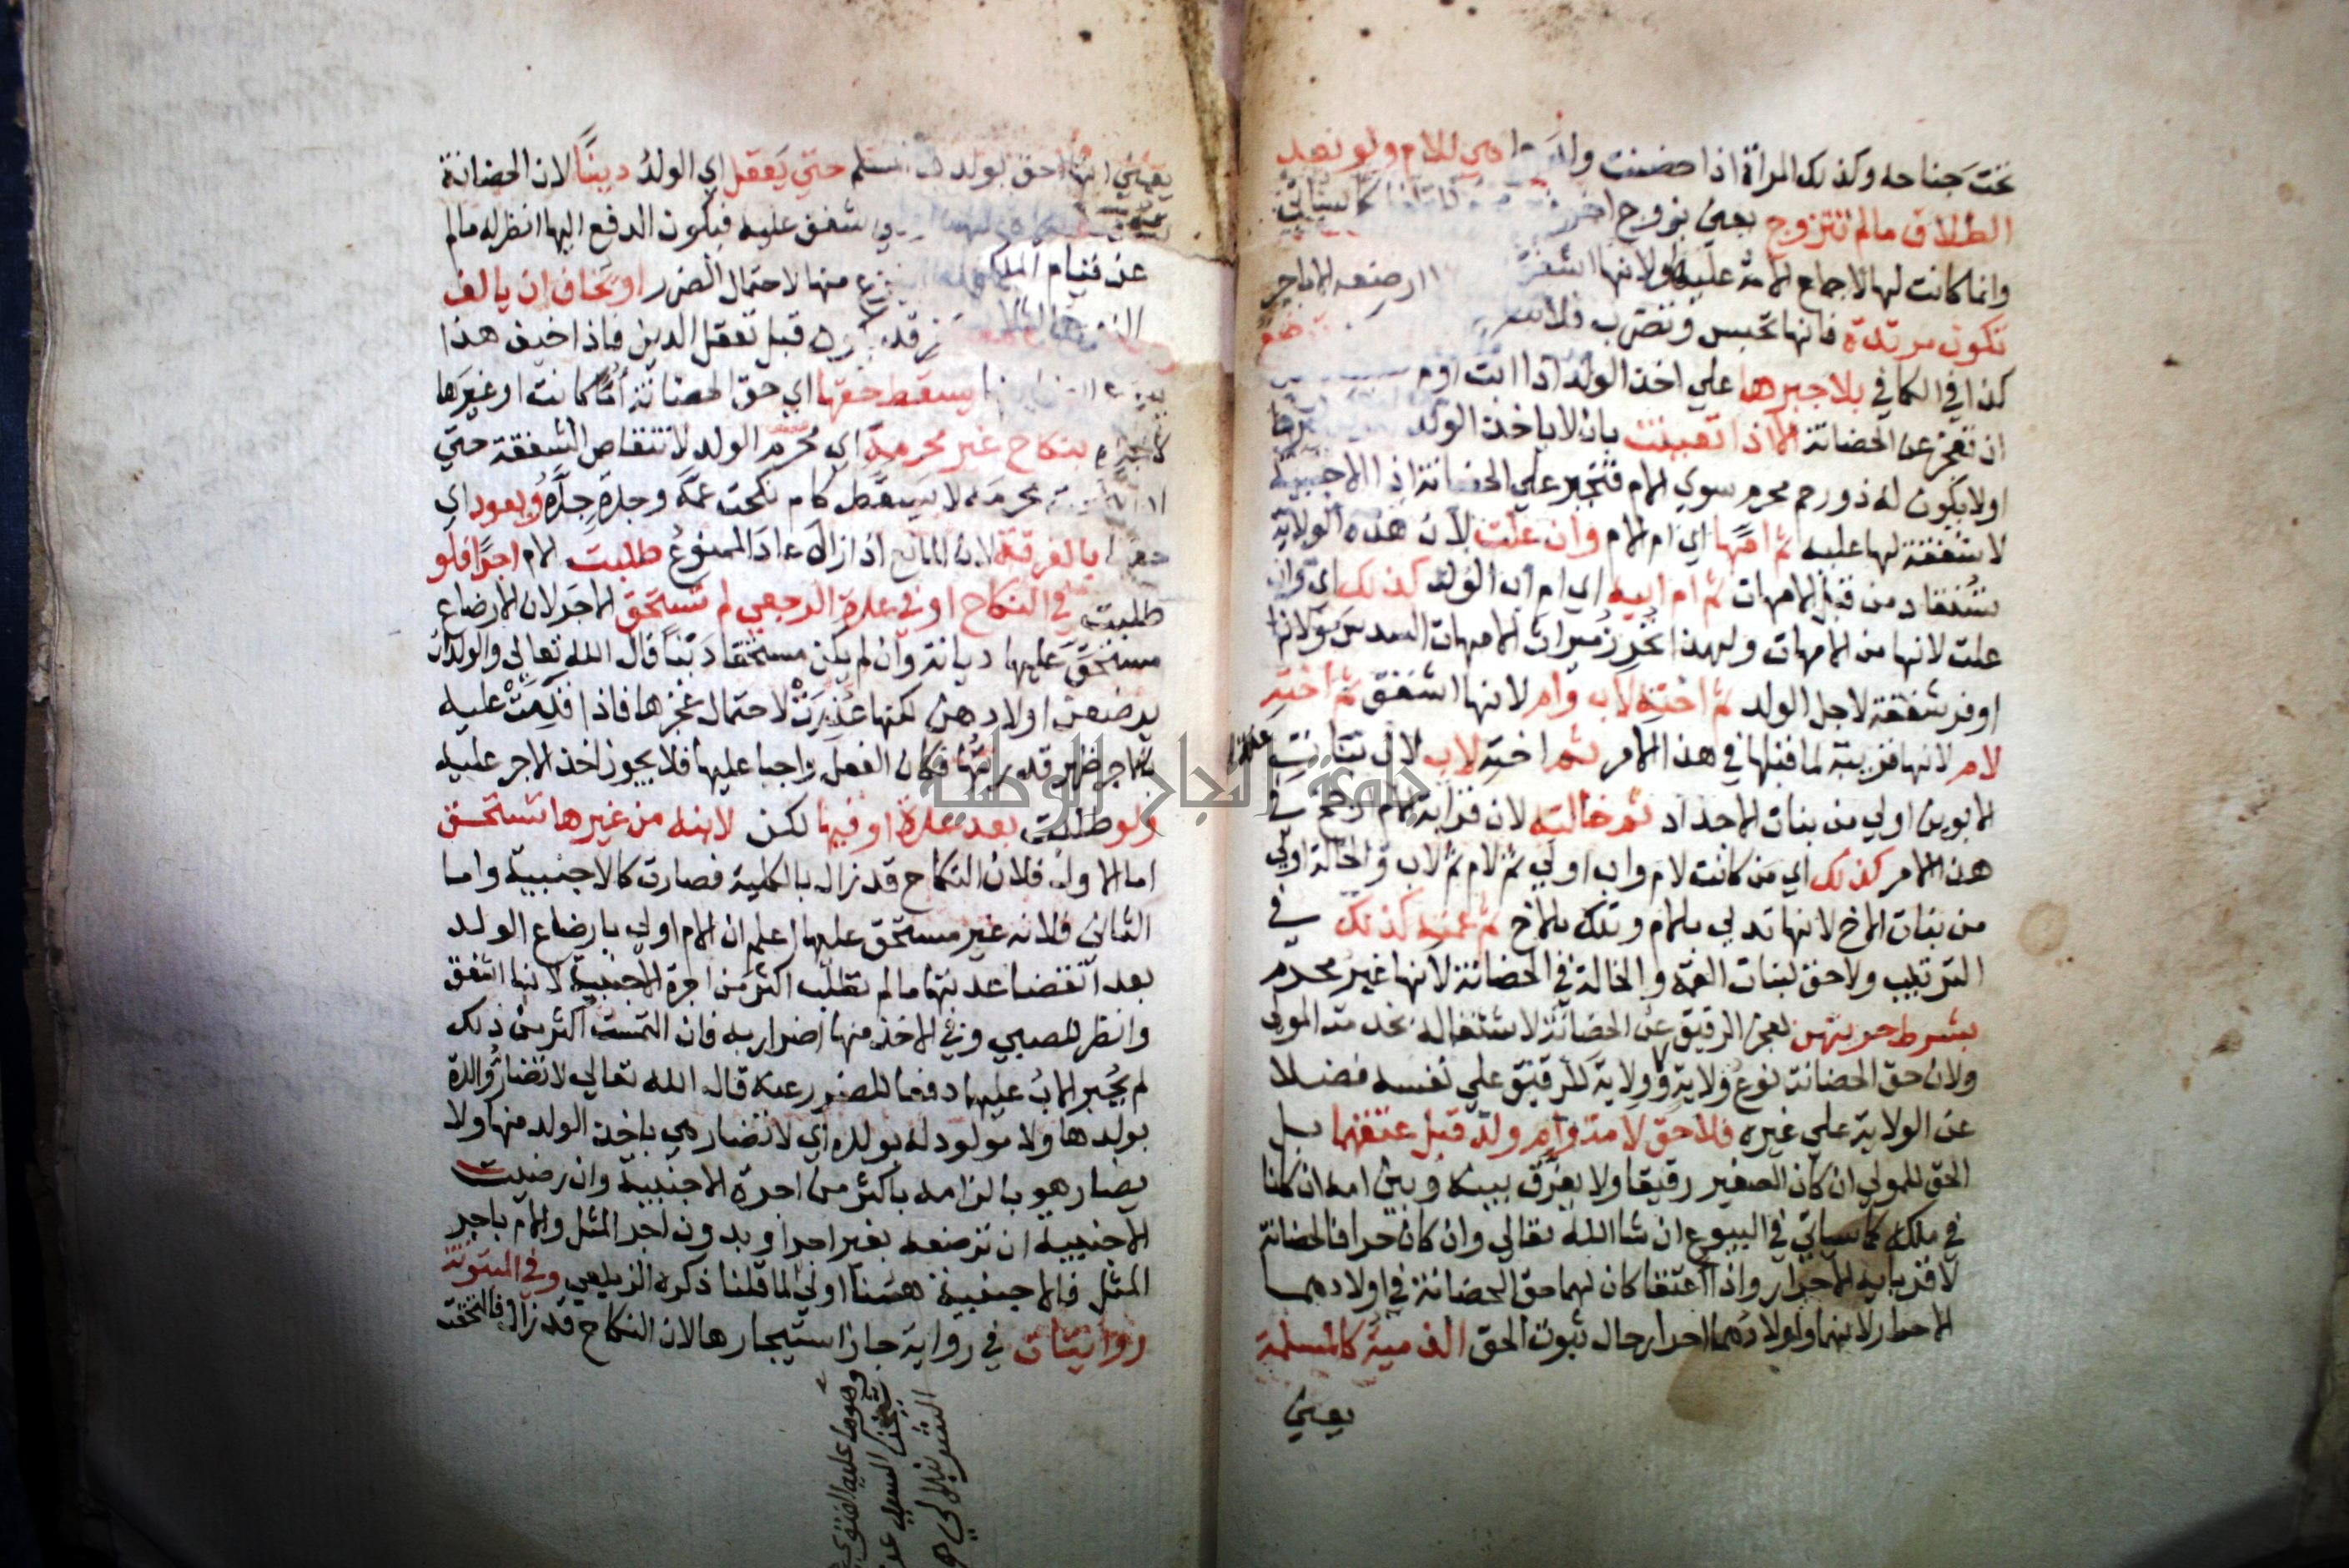 تحت جناحه وكذلك المرأة اذا حضنت ولدها هي للام ولو بعد
الطلاق ما لم تتزوج يعني بزوج اخر كما سياتي
وانما كانت لها لاجماع الامة عليه ولانها اشفق
تكون مرتدة فانها تحبس وتضرب فلا
كذا في الكافي بلا جبرها علي اخذ الولد اذا ابت اولم
ان تعجز عن الحضانة الا اذا تعينت بان لا ياخذ الولد
اولا يكون له ذو رحم محرم سوي الام فتجبر علي الحضانة اذ الاجنبية
لا شفقة لها عليه ثم امها اي ام الام وان علت لان هذه الولاية
تستفاد من قبل الامهات ثم ام ابيه اي ام اب الولد كذلك اي وان
علت لانها من الامهات ولهذا تحرز ميراث الامهات السدس ولانها
اوفر شفقة لاجل الولد ثم اخته لاب وام لانها اشفق ثم اخته
لام لانها قريبة لما قبلها في هذا الامر ثم اخته لاب لان بنات
الابوين اولي من بنات الاجداد ثم خالته لان قرابة الام ارجح في
هذا الامر كذلك اي من كانت لام واب اولي ثم لام ثم لاب والخالة اولي
من بنات الاخ لانها تدلي بالام وتلك بالاخ ثم عمته كذلك في
الترتيب ولا حق لبنات العمة والخالة في الحضانة لانها غير محرم
بشرط حريتهن لعجز الرقيق عن الحضانة لاشتغاله بخدمة المولي
ولان حق الحضانة نوع ولاية ولا ولاية للرقيق علي نفسه فضلا
عن الولاية علي غيره فلا حق لامة وام ولد قبل عتقهما بل
الحق للمولي ان كان الصغير رقيقا ولا يفرق بينه وبين امه ان كانا
في ملكه كما سياتي في البيوع ان شا الله تعالي وان كان حرا فالحضانة
لاقربايه الاحرار واذا اعتقا كان لهما حق الحضانة في اولادهما
الاحرار لانهما واولادهما احرار حال ثبوت الحق الذمية كالمسلمة
يعني
يعني انها احق بولدها المسلم حتي يعقل اي الولد دينا لان الحضانة
شفق عليه فيكون الدفع اليها انظر له ما لم
منها لاحتمال الضرر او يخاف ان يالف
قبل تعقل الدين فاذا خيف هذا
يسقط حقها اي حق الحضانة اما كانت او غيرها
بنكاح غير محرمه اي محرم الولد لانتقاص الشفقة حتي
محرمه لا يسقط كام نكحت عمه وجدة جده ويعود اي
بالفرقة لان المانع اذا زال عاد الممنوع طلبت الام اجرا فلو
طلبت في النكاح او في عدة الرجعي لم تستحق الاجر لان الارضاع
مستحق عليها ديانة وان لم يكن مستحقا دينا قال الله تعالي والوالدات
يرضعن اولادهن لكنها عذرت لاحتمال عجزها فاذا اقدمت عليه
بالاجر ظهر قدرتها فكان الفعل واجبا عليها فلا يجوز اخذ الاجر عليه
ولو طلبت بعد عدة او فيها لكن لابنه من غيرها تستحق
اما الاول فلان النكاح قد زال بالكلية فصارت كالاجنبية واما
الثاني فلانه غير مستحق عليها اعلم ان الام اولي بارضاع الولد
بعد انقضا عدتها ما لم تطلب اكثر من اجرة الاجنبية لانها اشفق
وانظر للصبي وفي الاخذ منها اضرار به فان التمست اكثر من ذلك
لم يجبر الاب عليها دفعا للضرر عنه قال الله تعالي لا تضار والدة
بولدها ولا مولود له بولده اي لا تضار هي باخذ الولد منها ولا
يضار هو بالزامه باكثر من اجرة الاجنبية وان رضيت
الاجنبية ان ترضعه بغير اجر او بدون اجر المثل والام باجر
المثل فالاجنبية هنا اولي لما قلنا ذكره الزيلعي وفي المبتوتة
روايتان في رواية جاز استيجارها لان النكاح قد زال فالتحقت
وهو ما عليه الفتوي
الشرنبلالي